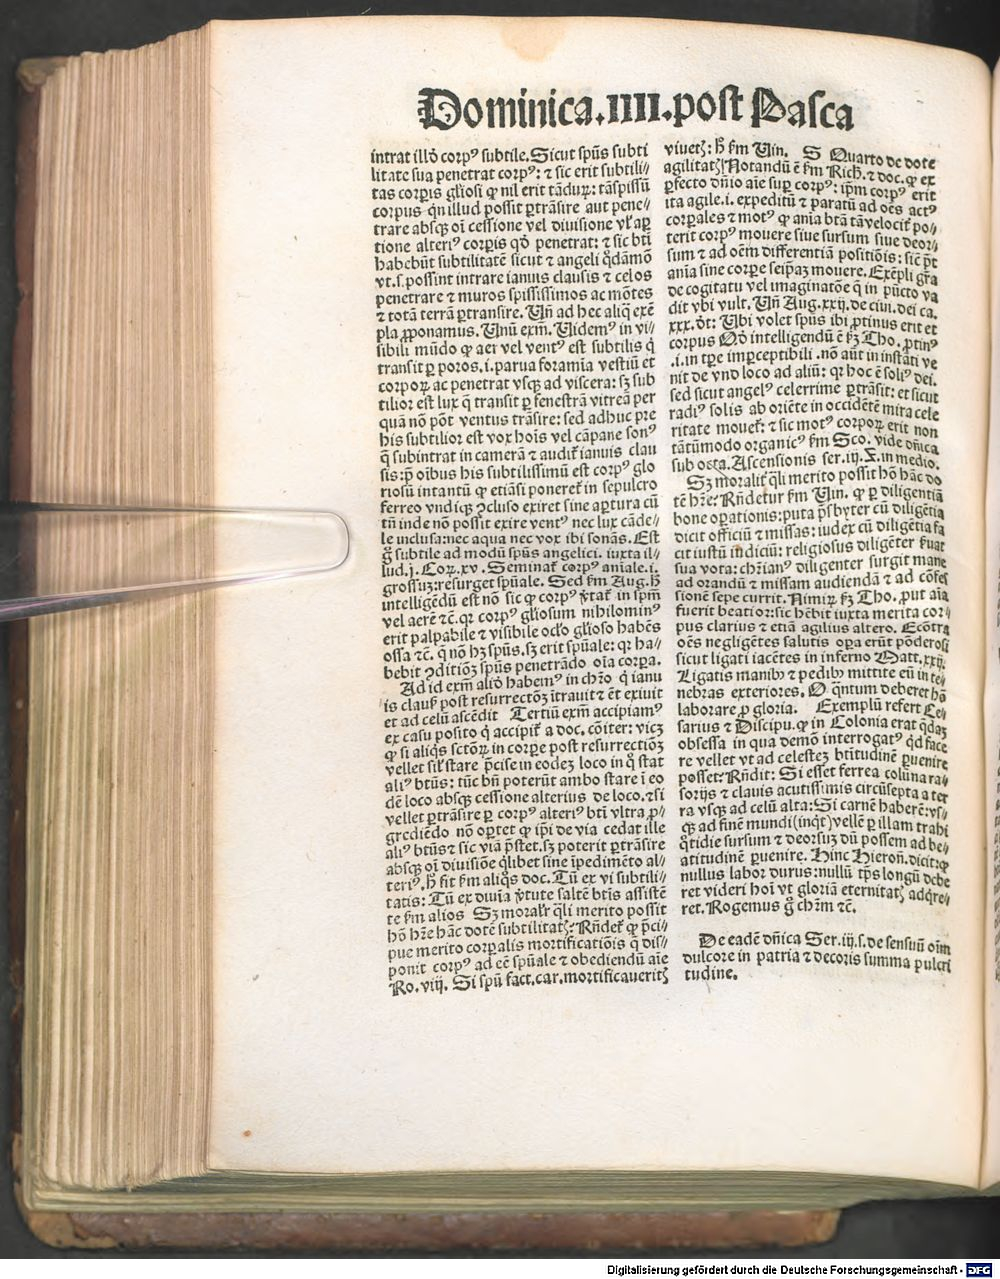 Dominica.IIII.post Pasca
intrat illō corpꝰ subtile. Sicut spūs subti
litate sua penetrat corpꝰ: ⁊ sic erit subtili⸗
tas corpis gl̄iosi ꝙ nil erit tādurꝫ: tāspissū
corpus qn̄ illud possit ꝑtrāsire aut pene⸗
trare absqꝫ oī cessione vel diuisione vl̓ aꝑ
tione alteriꝰ corpis qd̓ penetrat: ⁊ sic bt̄i
habebūt subtilitatē sicut ⁊ angeli q̄dāmō
vt.s. possint intrare ianuis clausis ⁊ celos
penetrare ⁊ muros spississimos ac mōtes
⁊ totā terrā ꝑtransire. Un̄ ad hec aliq̄ exē
pla ꝓponamus. Unū exm̄. Uidemꝰ in vi⸗
sibili mūdo ꝙ aer vel ventꝰ est subtilis q̇
transit ꝑ poros.i. parua foramīa vestiū et
corpoꝝ ac penetrat vsqꝫ ad viscera: sꝫ sub
tilior est lux q̄ transit ꝑ fenestrā vitreā per
quā nō pōt ventus trāsire: sed adhuc pre
his subtilior est vox hoīs vel cāpane sonꝰ
q̇ subintrat in camerā ⁊ audit̄ ianuis clau
sis: p̄ oībus his subtilissimū est corpꝰ glo
riosū intantū ꝙ etiāsi poneret̄ in sepulcro
ferreo vndiqꝫ ꝯcluso exiret sine aꝑtura cū
tn̄ inde nō possit exire ventꝰ nec lux cāde⸗
le inclusa: nec aqua nec vox ibi sonās. Est
g̊ subtile ad modū spūs angelici. iuxta il⸗
lud.j. Coꝝ.xv. Seminat̄ corpꝰ aniale.i.
grossuꝫ: resurget spūale. Sed s̄m Aug. h̄
intelligēdū est nō sic ꝙ corpꝰ v̄tat̄ in spm̄
vel aere ⁊c. qꝛ corpꝰ gl̄iosum nihilominꝰ
erit palpabile ⁊ visibile oclo gl̄ioso habēs
ossa ⁊c. q̄ nō hꝫ spūs. sꝫ erit spūale: qꝛ ha⸗
bebit ꝯditiōꝫ spūs penetrādo oīa corpa.
Ad id exm̄ aliō habemꝰ in chr̄o q̇ ianu
is clausꝭ post resurrectōꝫ ītrauit ⁊ ēt exiuit
et ad celū ascēdit Tertiū exm̄ accipiamꝰ
ex casu posito q̇ accipit̄ a doc. cōiter: vicꝫ
ꝙ si aliq̇s sctōꝝ in corpe post resurrectiōꝫ
vellet sil̓ stare p̄cise in eodeꝫ loco in q̊ stat
aliꝰ btūs: tūc bn̄ poterūt ambo stare ī eo
dē loco absqꝫ cessione alterius de loco. ⁊ si
vellet ꝑtrāsire ꝑ corpꝰ alteriꝰ btī vltra ꝓ⸗
grediēdo nō oꝑtet ꝙ ip̄i de via cedat ille
aliꝰ btūs ⁊ sic viā p̄stet. sꝫ poterit ꝑtrāsire
absqꝫ oī diuisiōe q̄libet sine īpedimēto al⸗
teriꝰ. h̄ fit s̄m aliq̊s doc. Tū ex vi subtili⸗
tatis: Tū ex diuīa v̓tute saltē btīs assistē
te s̄m alios Sꝫ moral̓r q̄li merito possit
hō hr̄e hāc dotē subtilitatꝭ? Rn̄det̄ ꝙ p̄ci⸗
pue merito corꝑalis mortificatiōis q̄ dis⸗
ponit corpꝰ ad eē spūale ⁊ obediendū aīe
Ro. viij. Si spū fact. car. mortificaueritꝭ
viuetꝭ: h̄ s̄m Uin. S Quarto de dote
agilitatꝭ Notandū ē s̄m Rich. ⁊ doc. ꝙ ex
ꝑfecto dn̄io aīe suꝑ corpꝰ: ip̄m corpꝰ erit
ita agile.i. expeditū ⁊ paratū ad oēs actꝰ
corꝑales ⁊ motꝰ ꝙ anīa btā tā velocit̄ po⸗
terit corpꝰ mouere siue sursum siue deor⸗
sum ⁊ ad oēm differentiā positiōis: sic p̄t
anīa sine corpe seip̄aꝫ mouere. Exēpli gr̄a
de cogitatu vel imaginatōe q̄ in pūcto va
dit vbi vult. Un̄ Aug. xxij. de ciui. dei ca.
xxx. dt̄: Ubi volet spūs ibi ꝓtinus erit et
corpus Qd̓ intelligendū ē ẜꝫ Tho. ꝓtinꝰ
.i. in tp̄e imꝑceptibili. nō aūt in instāti ve
nit de vno loco ad aliū: qꝛ hoc ē soliꝰ dei.
sed sicut angelꝰ celerrime ꝑtrāsit: et sicut
radiꝰ solis ab oriēte in occidētē mira cele
ritate mouet̄: ⁊ sic motꝰ corpoꝝ erit non
tātūmodo organicꝰ s̄m Sco. vide dn̄ica
sub octa. Ascensionis ser. iij. X. in medio.
Sꝫ moralit̄ q̄li merito possit hō hāc do
tē hr̄e: Rn̄detur s̄m Uin. ꝙ ꝑ diligentiā
bone oꝑationis: puta p̄sbyter cū diligētia
dicit officiū ⁊ missas: iudex cū diligētia fa
cit iustū iudiciū: religiosus diligēter ẜuat
sua vota: chr̄ianꝰ diligenter surgit mane
ad orandū ⁊ missam audiendā ⁊ ad cōfes
sionē sepe currit. Nimiꝝ ẜꝫ Tho. ꝓut aīa
fuerit beatior: sic hēbit iuxta merita cor⸗
pus clarius ⁊ etiā agilius altero. Ecōtra
oēs negligētes salutis oꝑa erūt pōderosi
sicut ligati iacētes in inferno Matt. xxij.
Ligatis manibꝰ ⁊ pedibꝰ mittite eū in te⸗
nebras exteriores. O q̄ntum deberet hō
laborare ꝓ gloria. Exemplū refert Ce⸗
sarius ⁊ Discipu. ꝙ in Colonia erat q̄daꝫ
obsessa in qua demō interrogatꝰ qd̓ face
re vellet vt ad celesteꝫ btītudinē ꝑuenire
posset: Rn̄dit: Si esset ferrea colūna ra⸗
sorijs ⁊ clauis acutissimis circūsepta a ter
ra vsqꝫ ad celū alta: Si carnē haberē: vs⸗
qꝫ ad finē mundi (inq̇t) vellē ꝑ illam trahi
q̊tidie sursum ⁊ deorsuꝫ dū possem ad be⸗
atitudinē ꝑuenire. Hinc Hieron. dicit: ꝙ
nullus labor durus: nullū tp̄s longū debe
ret videri hoī vt gloriā eternitatꝭ adq̇re⸗
ret. Rogemus g̊ chr̄m ⁊c.
De eadē dn̄ica Ser. iij. s. de sensuū oīm
dulcore in patria ⁊ decoris summa pulcri
tudine.
Digitalisierung gefördert durch die Deutsche Forschungsgemeinschaft - DFG